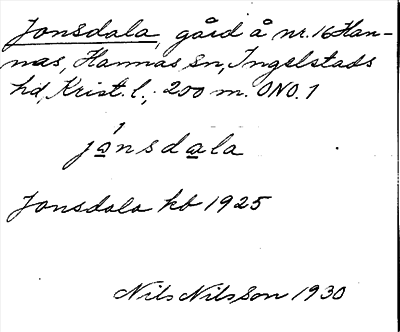 Jonsdala, gård å nr. 16 Han-
nas, Hannas sn, Ingelstads
hd, Krist. l., 200 m. ONO. 1
jo̲nsda̲la
Jonsdala kb 1925
Nils Nilsson 1930